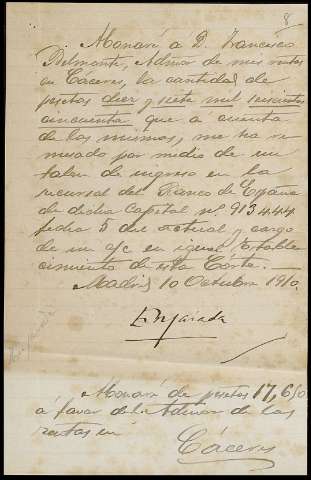 8
Abonaré á D. Francisco
Belmonte, Admor de mis rentas
en Cáceres, la cantidad de
pesetas diez y siete mil seiscientas
cincuenta que á cuenta
de las mismas, me ha re-
mesado por medio de un
talon de ingreso en la
sucursal del Banco de España
de dicha Capital nº 913.444
fecha 5 del actual y cargo
de mi c/c en igual Estable-
cimiento de esta Córte.
Madrid 10 Octubre 1910.
Abonaré de pesetas 17,650
á favor del Admor de las
rentas en
Cáceres